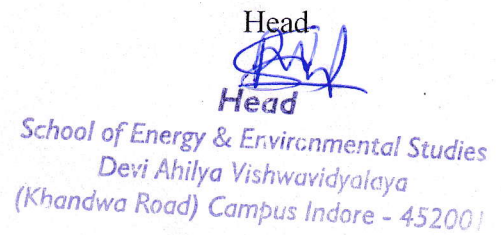 Head
Head
School of Energy & Environmental Studies
Devi Ahilya Vishwavidyalaya
(Khandwa Road) Campus Indore - 452001